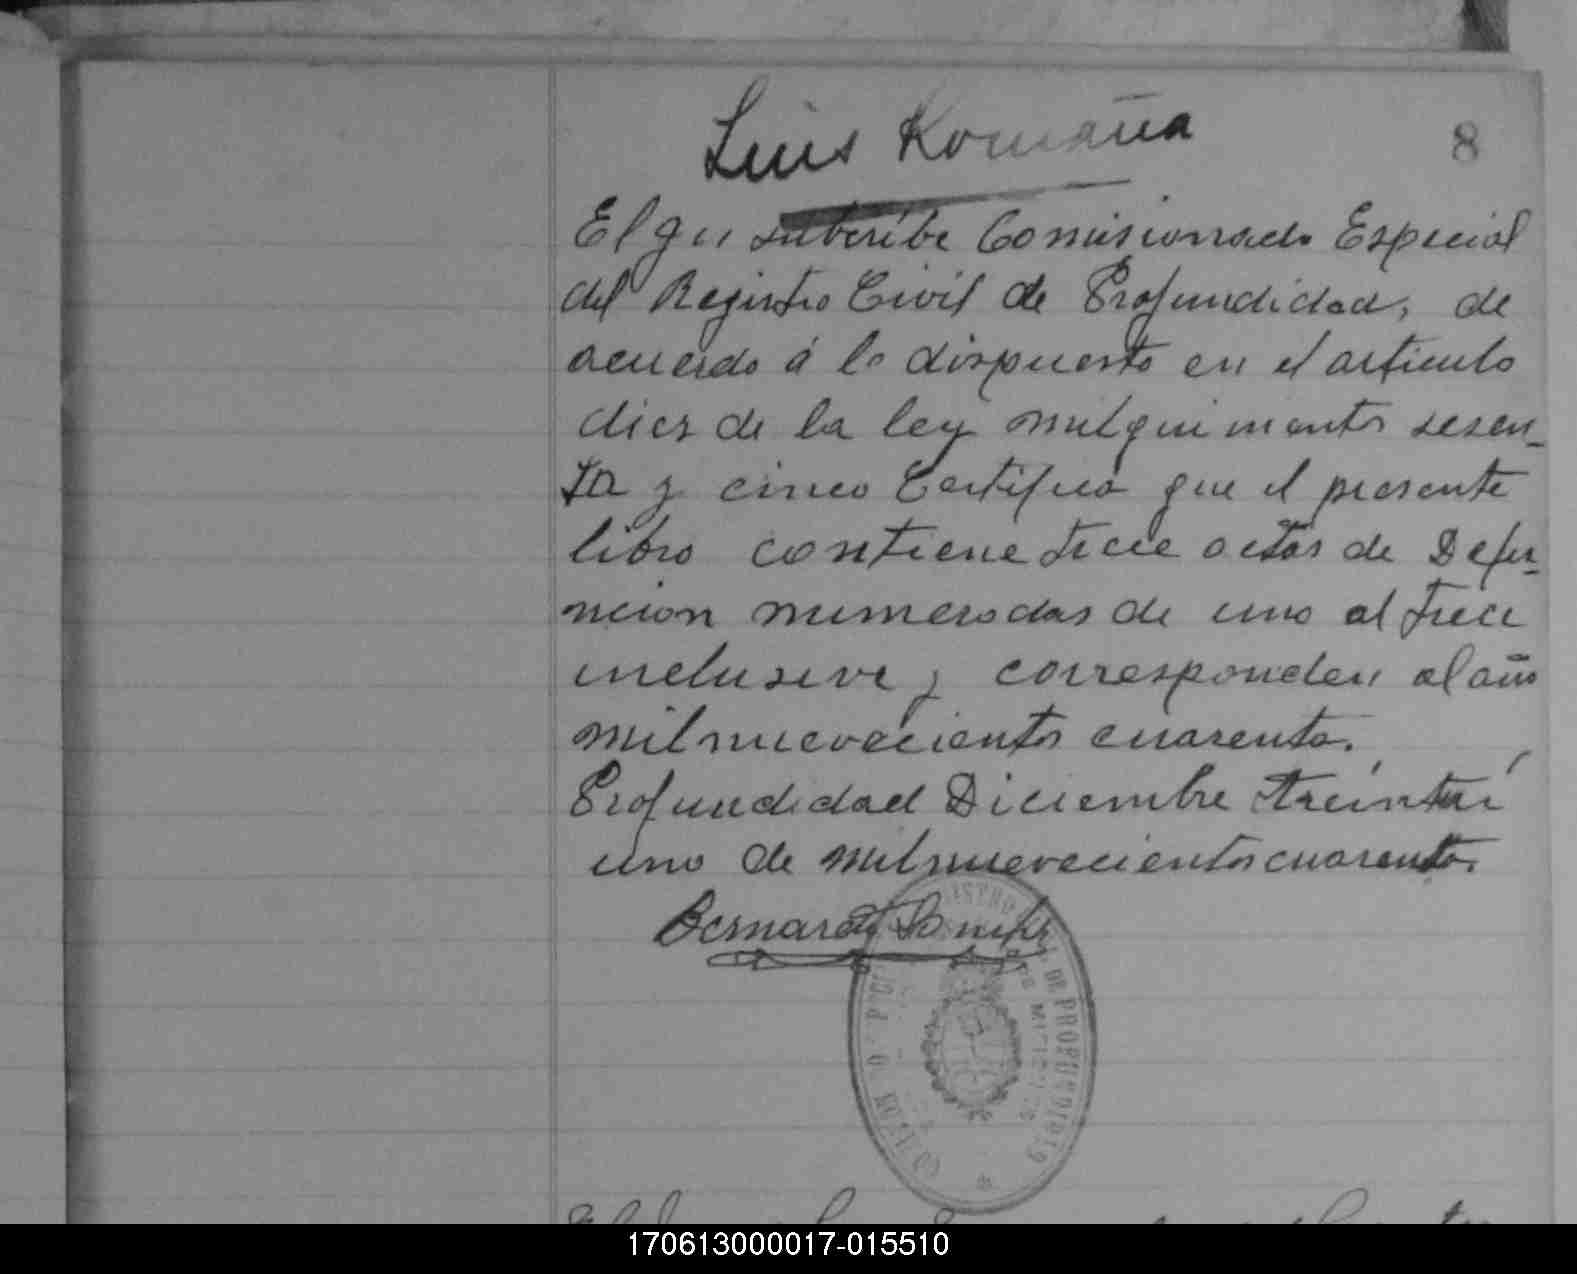 Luis Romaña
8
El que subscribe Comisionado Especial
del Registro Civil de Profundidad, de
acuerdo á lo dispuesto en el articulo
diez de la ley milquinientos sesen-
ta y cinco Certifica que el presente
libro contiene trece actas de Defun-
ncion numeradas de uno al trece
inclusive y corresponden al año
milnuevecientos cuarenta.
Profundidad Diciembre treinta í
uno de milnuevecientos cuarenta.
Bernardo
REGISTRO CIVIL DE PROFUNDIDAD
MISIONES
170613000017-015510